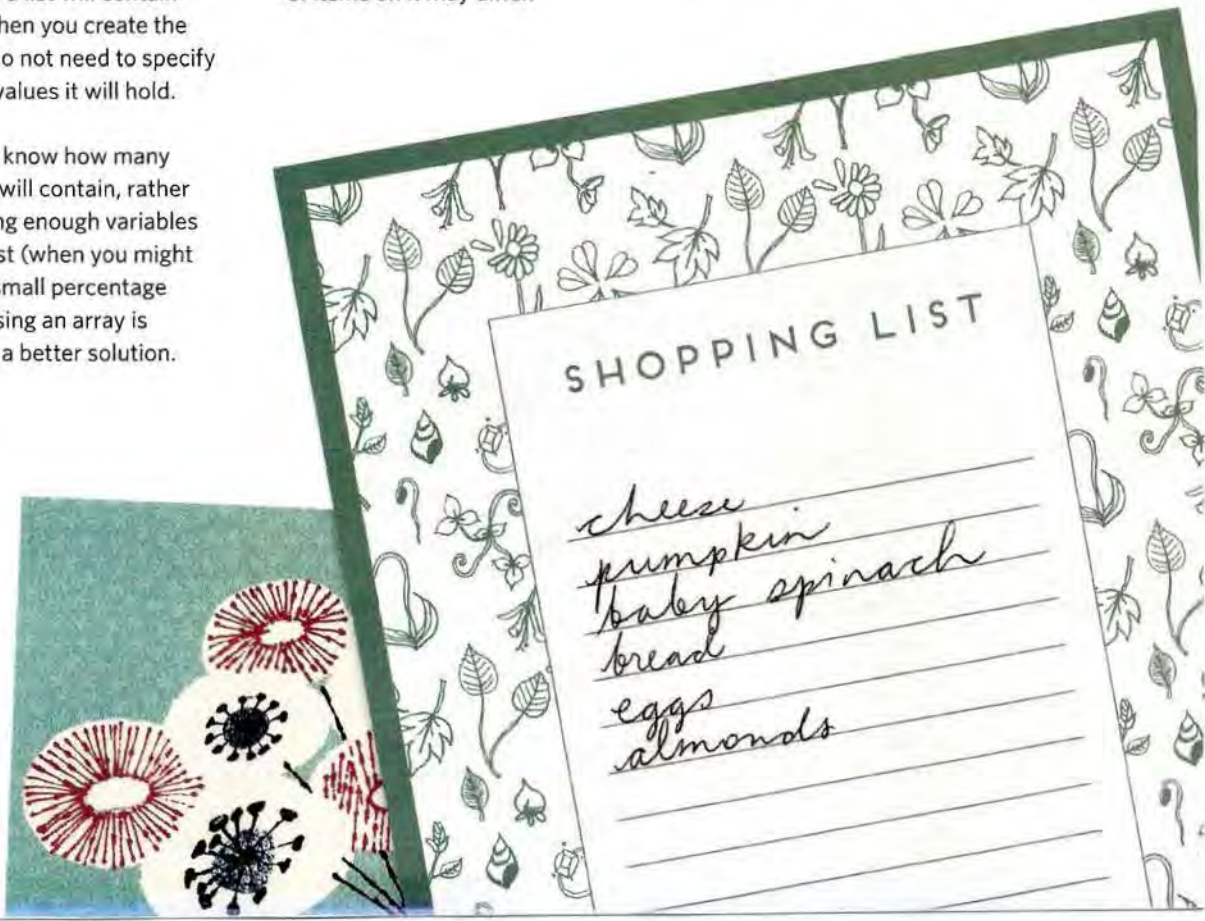 a list will contain
hen you create the
o not need to specify
values it will hold.
know how many
will contain, rather
ng enough variables
st (when you might
small percentage
sing an array is
a better solution.
SHOPPING LIST
cheese
pumpkin
baby spinach
bread
eggs
almonds